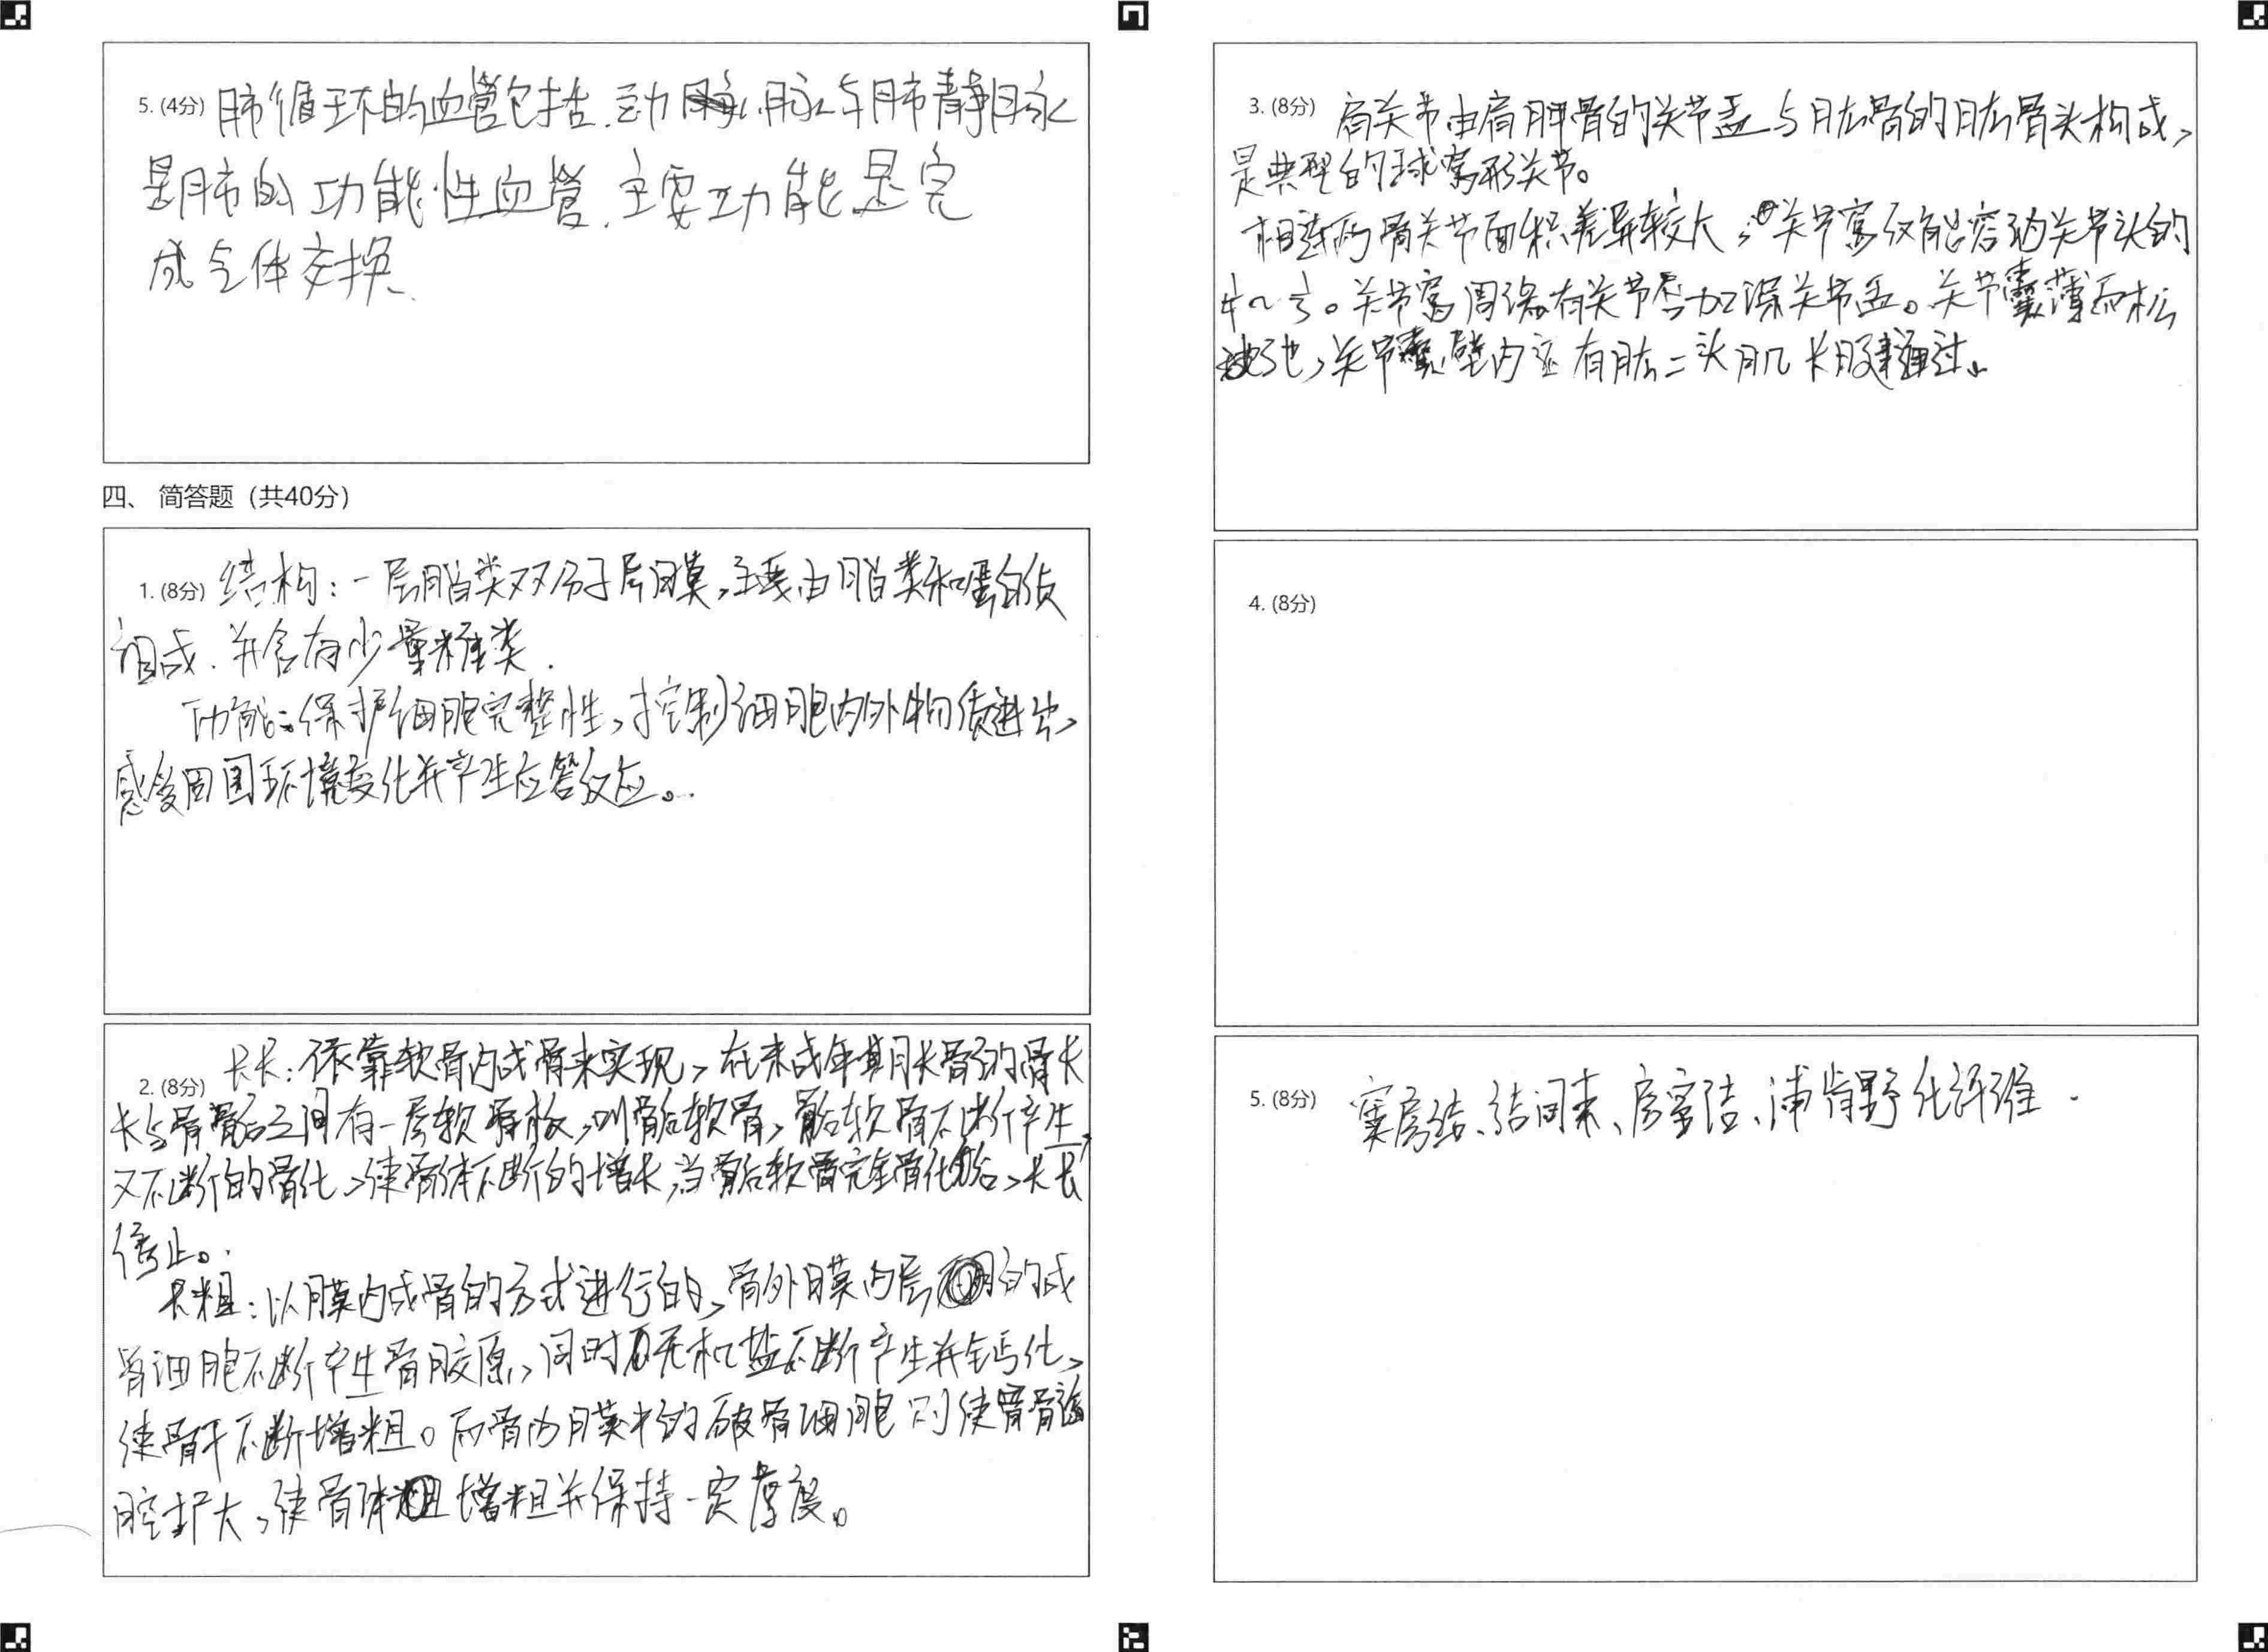 5. (4分) 肺循环的血管包括.动脉与肺静脉
是肺的功能性血管.主要功能是完
成气体交换.
四、 简答题（共40分）
1. (8分) 结构：一层脂类双分子层膜,主要由脂类和蛋白质
组成.并含有少量糖类.
功能：保护细胞完整性,控制细胞内外物质进出,
感受周围环境变化并产生应答效应。
2. (8分) 长长：依靠软骨内成骨来实现,在未成年期长骨的骨长
长与骨骺之间有一层软骨板,叫骺软骨,骺软骨不断产生,
又不断的骨化,使骨体不断的增长,当骺软骨完全骨化后,长长
停止。
长粗：以膜内成骨的方式进行的,骨外膜内层的成
骨细胞不断产生骨胶原,同时无机盐不断产生并钙化,
使骨干不断增粗。而骨内膜中的破骨细胞则使骨髓
腔扩大,使骨体增粗并保持一定厚度。
3. (8分) 肩关节由肩胛骨的关节盂与肱骨的肱骨头构成,
是典型的球窝形关节。
相连两骨关节面积差异较大,关节窝仅能容纳关节头的
1/4~1/3。关节窝周缘有关节唇加深关节盂。关节囊薄而松
弛,关节囊壁内还有肱二头肌长腱通过。
4. (8分)
5. (8分) 窦房结、结间束、房室结、浦肯野化纤维.